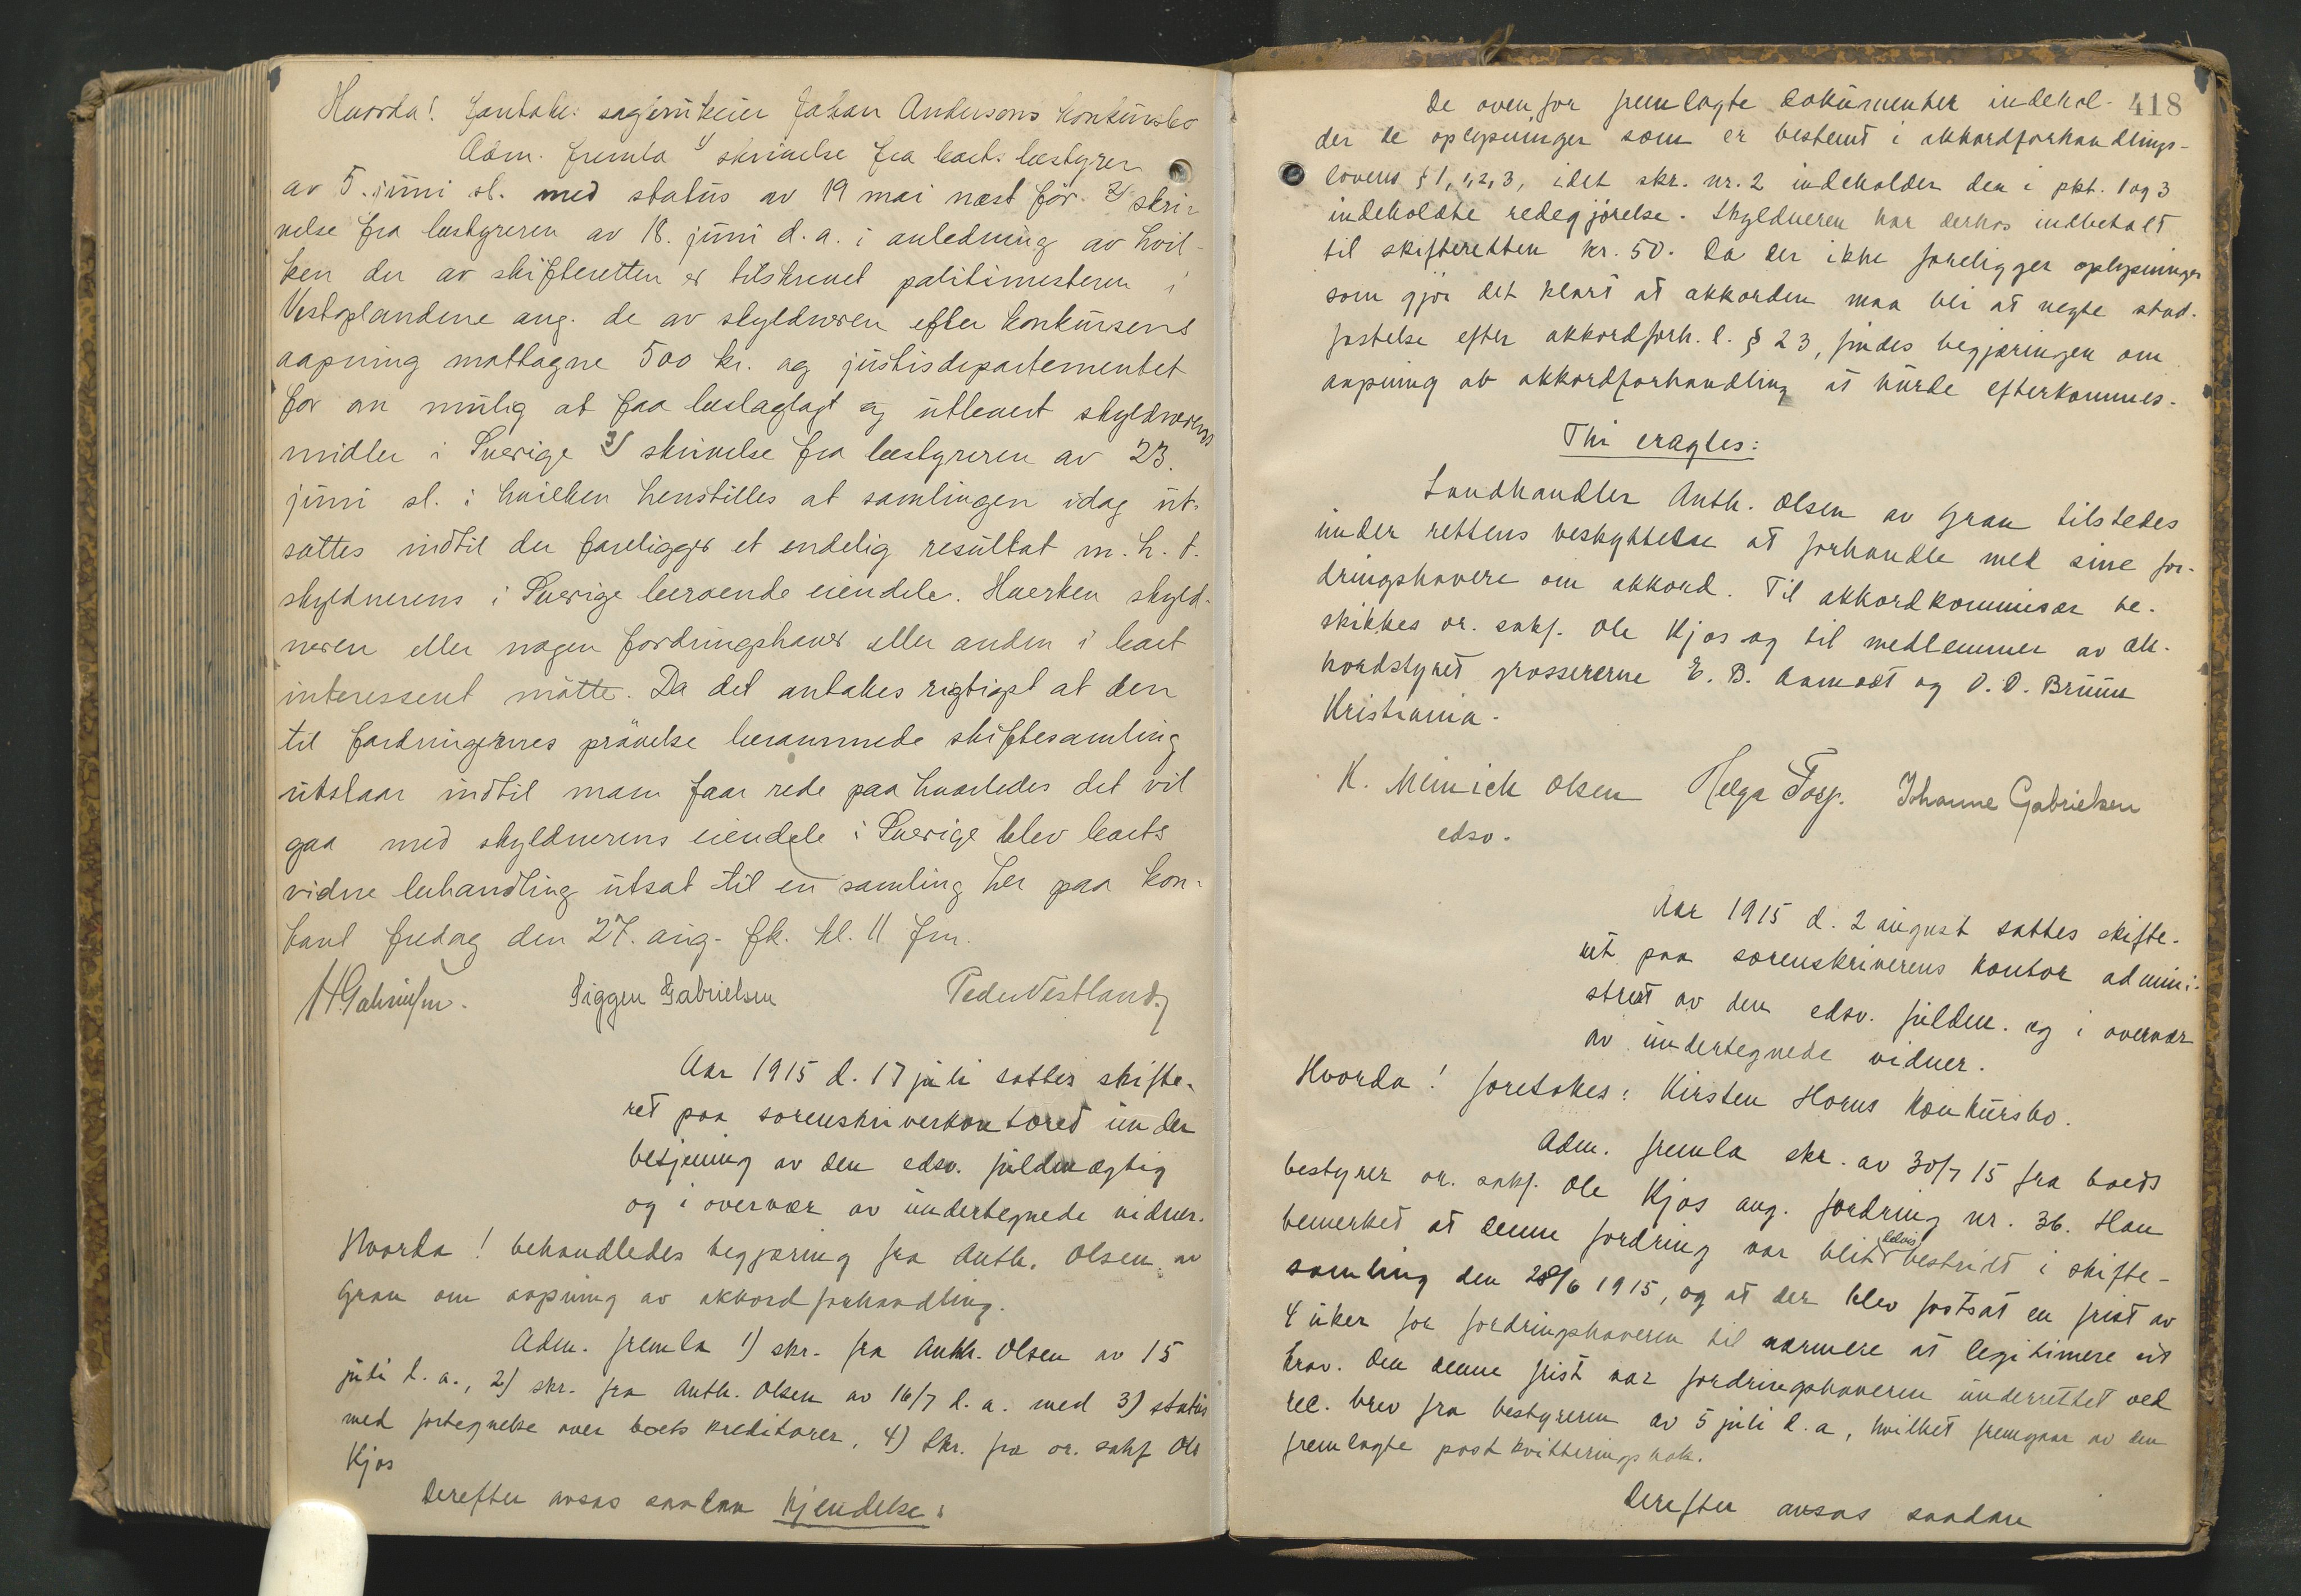 Hvorda! Foretakes: sagbrukeier Johan Andersons konkursbo
Adm. fremla 1) skrivelse fra boets bestyrer
av 5. juni sl. med status av 19 mai næst før. 2) skri-
velse fra bestyreren av 18. juni d. a. i anledning av hvil-
ken der av skifteretten er tilskrevet politimesteren i
Vestoplandene ang. de av skyldneren efter konkursens
aapning mottagne 500 kr. og justisdepartementet
for om mulig at faa beslaglagt og utlevert skyldnerens
midler i Sverige 3) skrivelse fra bestyreren av 23.
juni sl. i hvilken henstilles at samlingen idag ut-
sættes indtil der foreligger et endelig resultat m. h. t.
skyldnerens i Sverige beroende eiendele. Hverken skyld-
neren eller nogen fordringshaver eller anden i boet
interessert møtte. Da det antakes rigtigst at den
til fordringernes prøvelse berammede skiftesamling
utstaar indtil man faar rede paa hvorledes det vil
gaa med skyldnerens eiendele i Sverige blev boets
vidne behandling utsat til en samling her paa kon-
toret fredag den 27. aug. fk. kl. 11 fm.
Siggen Gabrielsen Peder Vestland
Aar 1915 d. 17 juli sattes skifte-
ret paa sorenskriverkontoret under
betjening av den edsv. fuldmægtig
og i overvær av undertegnede vidner.
Hvorda! behandledes begjæring fra Anth. Olsen av
Gran om aapning av akkordforhandling.
Adm. fremla 1) skr. fra Anth. Olsen av 15
juli d. a., 2) skr. fra Anth. Olsen av 16/7 d. a. med 3) status
med fortegnelse over boets kreditorer, 4) Skr. fra or. sakf Ole
Kjos
Derefter avsas saadan kjendelse:
418
De ovenfor fremlagte dokumenter indehol-
der de oplysninger som er bestemt i akkordforhandlings-
lovens § 1, 1, 2, 3, idet skr. nr. 2 indeholder den i pkt. 1 og 3
indeholdte redegjørelse. Skyldneren har derhos indbetalt
til skifteretten kr. 50. Da der ikke foreligger oplysninger
som gjør det klart at akkorden maa bli at negte stad-
fæstelse efter akkordforh. l. § 23, findes begjæringen om
aapning av akkordforhandling at burde efterkommes.
Thi eragtes:
Landhandler Anth. Olsen av Gran tilstedes
under rettens beskyttelse at forhandle med sine for-
dringshavere om akkord. Til akkordkommisær be-
skikkes or. sakf. Ole Kjos og til medlemmer av ak-
kordstyret grossererne E. B. Aamodt og O. O. Bruun
Kristiania.
K. Meinich Olsen Helga Torp. Johanne Gabrielsen
edsv.
Aar 1915 d. 2 august sattes skifte-
ret paa sorenskriverens kontor admini-
strert av den edsv. fuldm. og i overvær
av undertegnede vidner.
Hvorda! foretakes: Kirsten Horns konkursbo.
Adm. fremla skr. av 30/7 15 fra boets
bestyrer or. sakf. Ole Kjos ang. fordring nr. 36. Han
bemerket at denne fordring var blit delvis bestridt i skifte-
samling den 28/6 1915, og at der blev fastsat en frist av
4 uker for fordringshaveren til nærmere at legitimere sit
krav. Om denne frist var fordringshaveren underrettet ved
rec. brev fra bestyreren av 5 juli d. a, hvilket fremgaar av den
fremlagte postkvitteringsbok.
Derefter avsas saadan